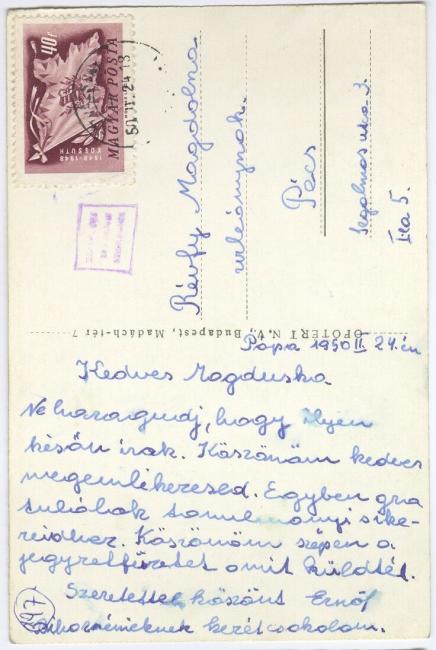 40f
MAGYAR POSTA
1848-1948
KOSSUTH
50 II. 24 18
Révfy Magdolna
urleánynak.
Pécs
Segalmas utca 3.
I. la 5.
OFOTÉRT N.V., Budapest, Madách-tér 7
Pápa 1950 II. 24.-én
Kedves Magduska
Ne haragudj, hogy ilyen
későn irok. Köszönöm kedves
megemlékezésed. Egyben gra
tulálok tanulmányi sike-
reidhez. Köszönöm szépen a
jegyzetfüzetet amit küldtél.
Szeretettel köszönt Ernőf
kezétcsokolom.